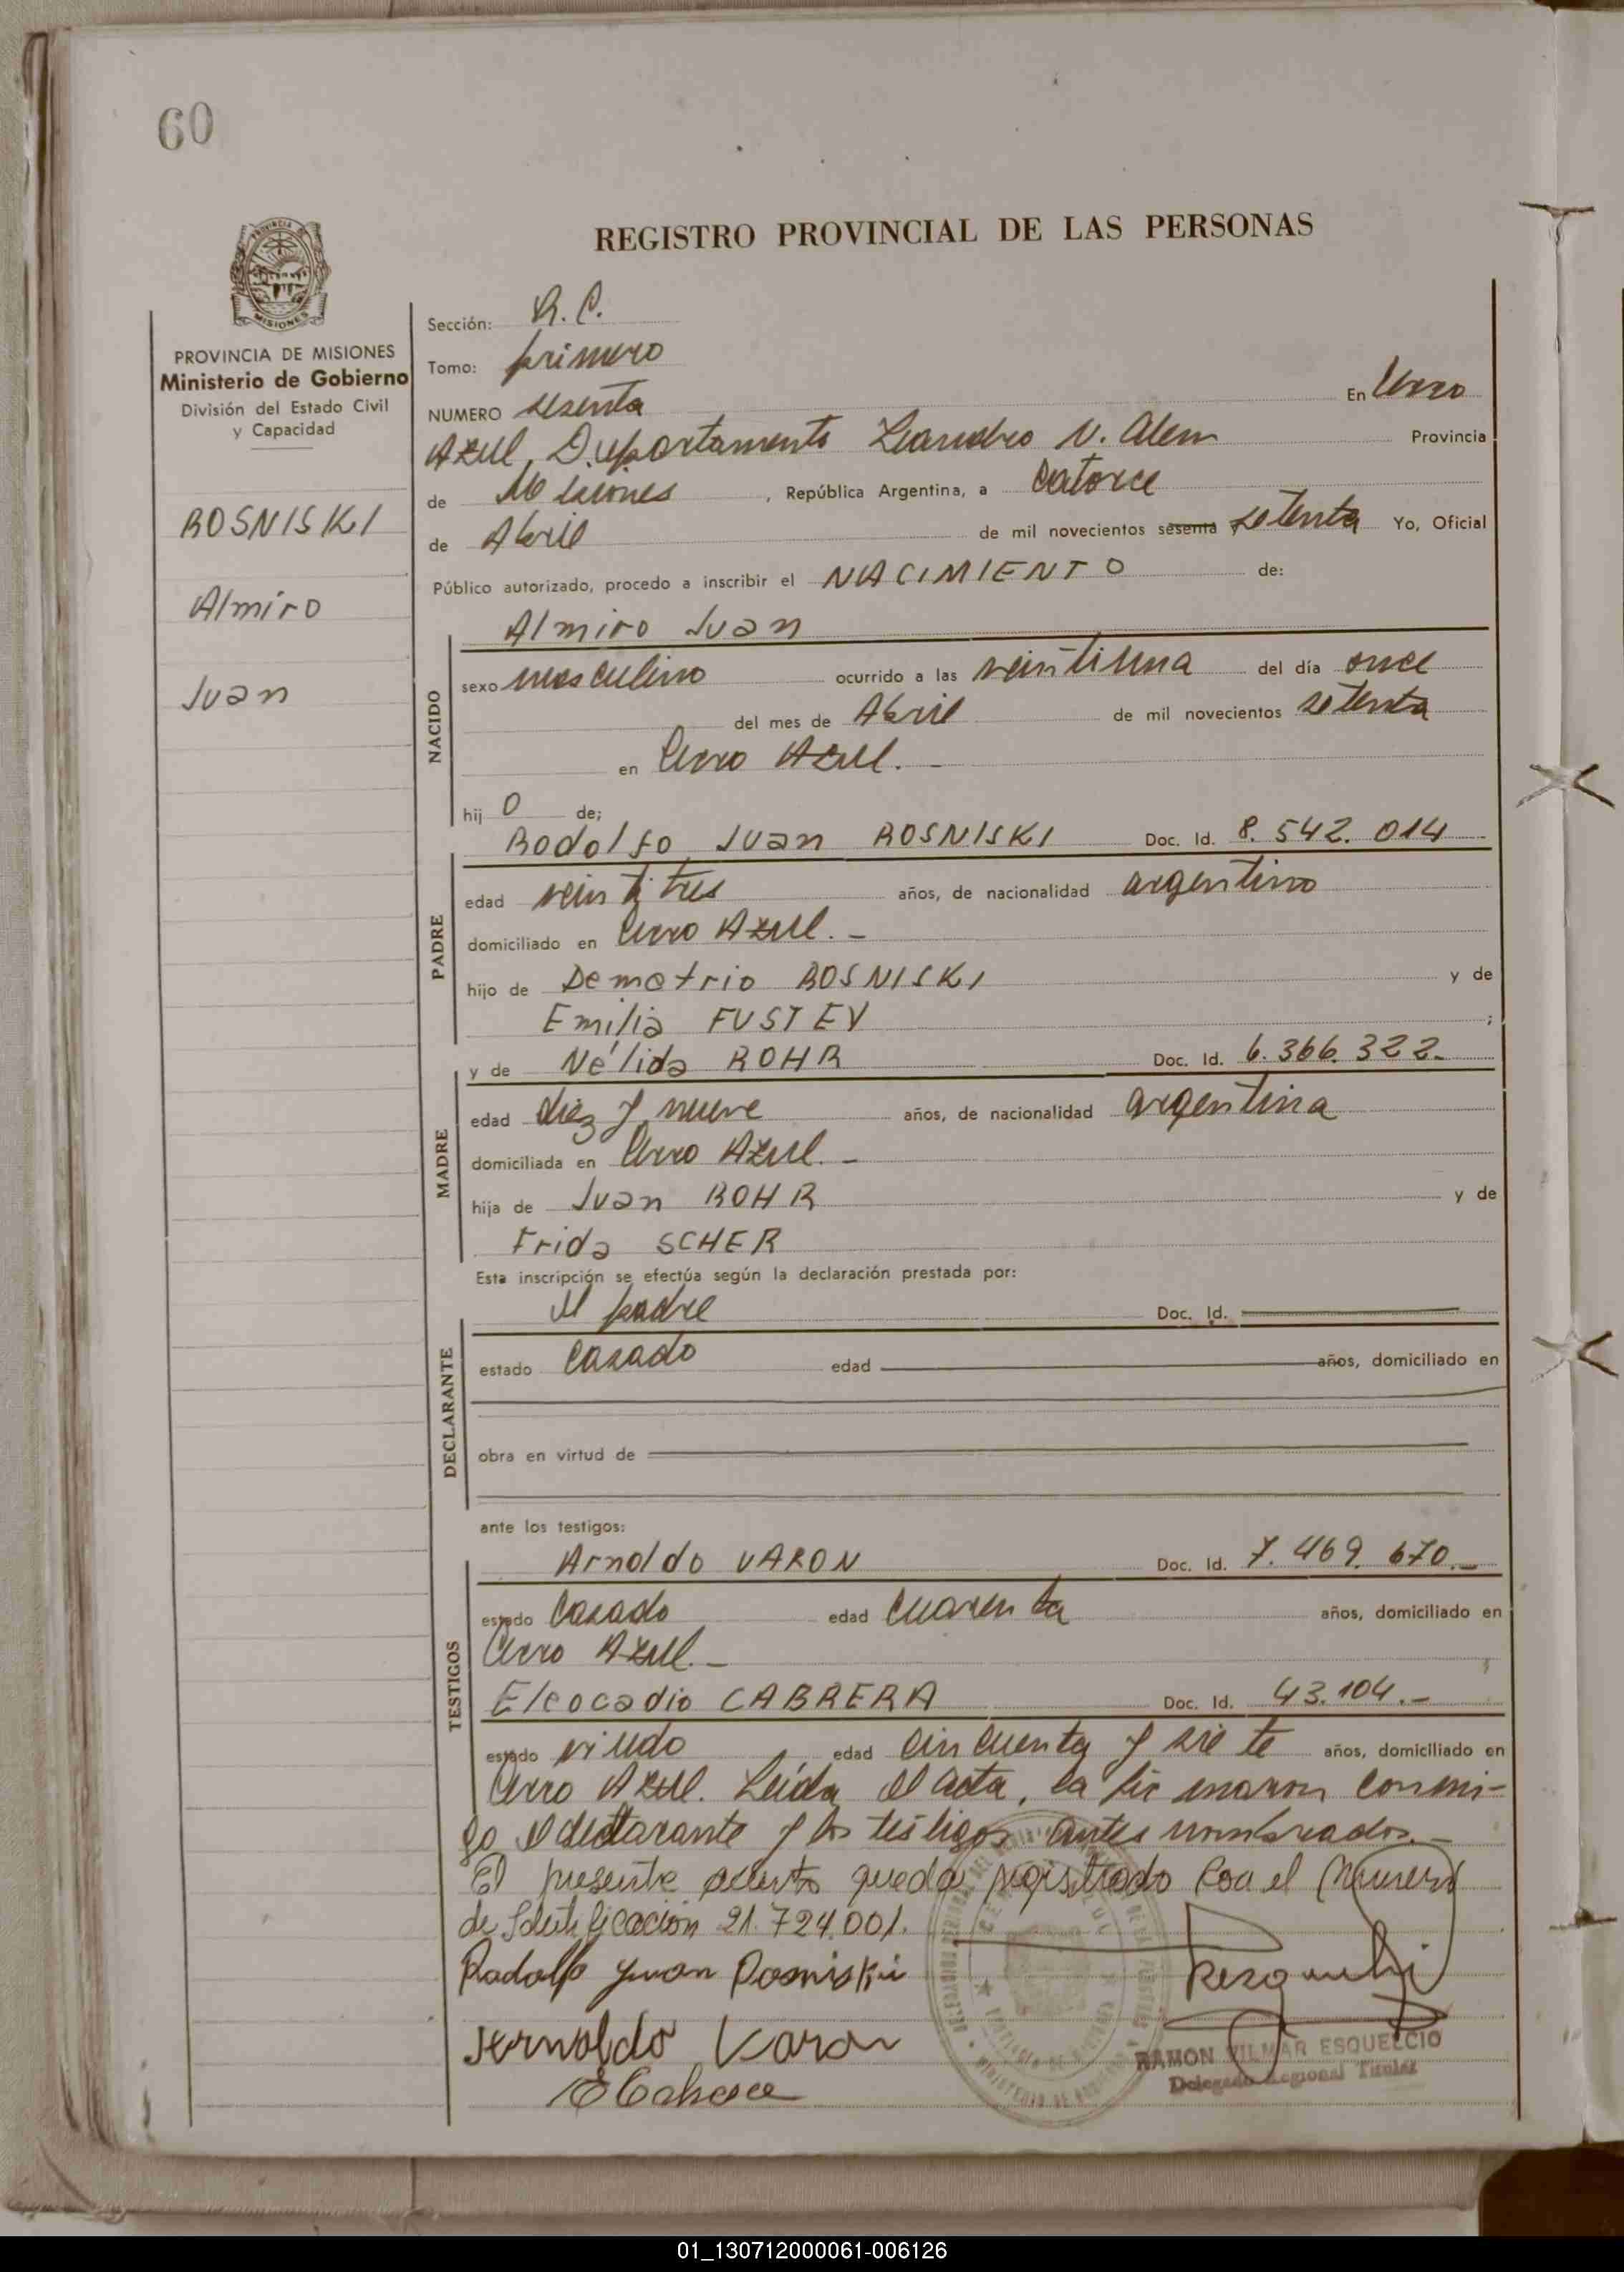 60
REGISTRO PROVINCIAL DE LAS PERSONAS
PROVINCIA DE MISIONES
Ministerio de Gobierno
División del Estado Civil
y Capacidad
ROSNISKI
Almiro
Juan
Sección: R. C.
Tomo: primero
NUMERO sesenta En Cerro
Azul, Departamento Leandro N. Alem Provincia
de Misiones, República Argentina, a catorce
de Abril de mil novecientos sesenta y setenta Yo, Oficial
Público autorizado, procedo a inscribir el NACIMIENTO de:
Almiro Juan
NACIDO
sexo masculino ocurrido a las veintiuna del día once
del mes de Abril de mil novecientos setenta
en Cerro Azul. -
hij o de;
Rodolfo Juan ROSNISKI Doc. Id. 8.542.014
PADRE
edad veintitres años, de nacionalidad argentino
domiciliado en Cerro Azul. -
hijo de Demetrio ROSNISKI y de
Emilia FUSTEV ;
y de Nélida ROHR Doc. Id. 6.366.322.-
MADRE
edad diez y nueve años, de nacionalidad argentina
domiciliada en Cerro Azul. -
hija de Juan ROHR y de
Frida SCHER
Esta inscripción se efectúa según la declaración prestada por:
el padre Doc. Id.
DECLARANTE
estado casado edad años, domiciliado en
obra en virtud de
ante los testigos:
Arnoldo VARON Doc. Id. 7.469.670.-
TESTIGOS
estado casado edad cuarenta años, domiciliado en
Cerro Azul. -
Eleocadio CABRERA Doc. Id. 43.104.-
estado viudo edad cincuenta y siete años, domiciliado en
Cerro Azul. Leída el acta, la firmaron conmi-
go el declarante y los testigos antes nombrados.-
El presente asiento queda registrado con el Número
de Identificación 21.724.001.
Rodolfo Juan Rosniski
Arnoldo Varon
RAMON VILMAR ESQUELCIO
Delegado Regional Titular
01_130712000061-006126